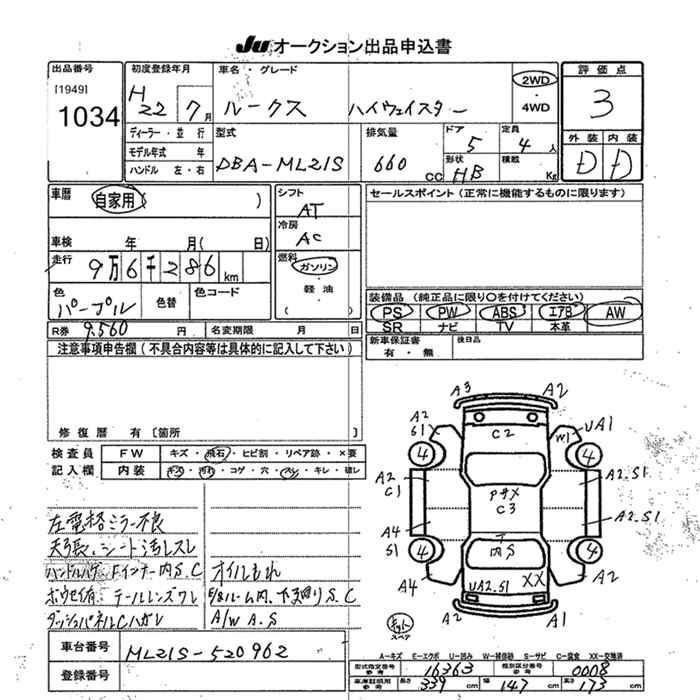 JU オークション出品申込書
出品番号
[1949]
1034
初度登録年月
H 22 7月
車名・グレード
ルークス ハイウェイスター
2WD
・
4WD
評価点
3
外装 内装
D D
ディーラー・並行
モデル年式 年
ハンドル 左・右
型式
DBA-ML21S
排気量
660 CC
ドア
5
形状
HB
定員
4人
積載
Kg
車歴
自家用 )
車検 年 月( 日)
走行
9万6千286km
色
パープル
色替
色コード
R券 9.560 円
名変期限 月 日
シフト
AT
冷房
AC
燃料
ガソリン
軽油
( )
セールスポイント(正常に機能するものに限ります)
装備品(純正品に限り〇を付けてください)
PS PW ABS エアB AW
SR ナビ TV 本革
新車保証書
有・無
後日品
注意事項申告欄(不具合内容等は具体的に記入して下さい)
修復歴 有[箇所
検査員
記入欄
FW キズ・飛石・ヒビ割・リペア跡・×要
内装 キズ・汚れ・コゲ・穴・スレ・キレ・破レ
左電格ミラー不良
天張、シート汚レスレ
ハンドルハゲ Fインナー内S.C
ホウセイ有. テールレンズワレ
ダッシュパネルCハガレ
オイルもれ
E/Bルーム内、下まわりS.C
A/W A.S
A3 A2
A2
S1
UA1
W1
C2
4 4
A2
C1
A2.S1
Pサメ
C3
A4
A2.S1
S1
内S
4 4
A4
UA2.S1
XX
A2
A2 A1
スペア
A-キズ E-エクボ U-凹み W-補修跡 S-サビ C-腐食 XX-交換済
車台番号
ML21S-520962
登録番号
型式指定番号
参考
16363
類別区分番号
参考
0008
車庫証明用
参考
長さ 339 cm 幅 147 cm 高さ 173 cm